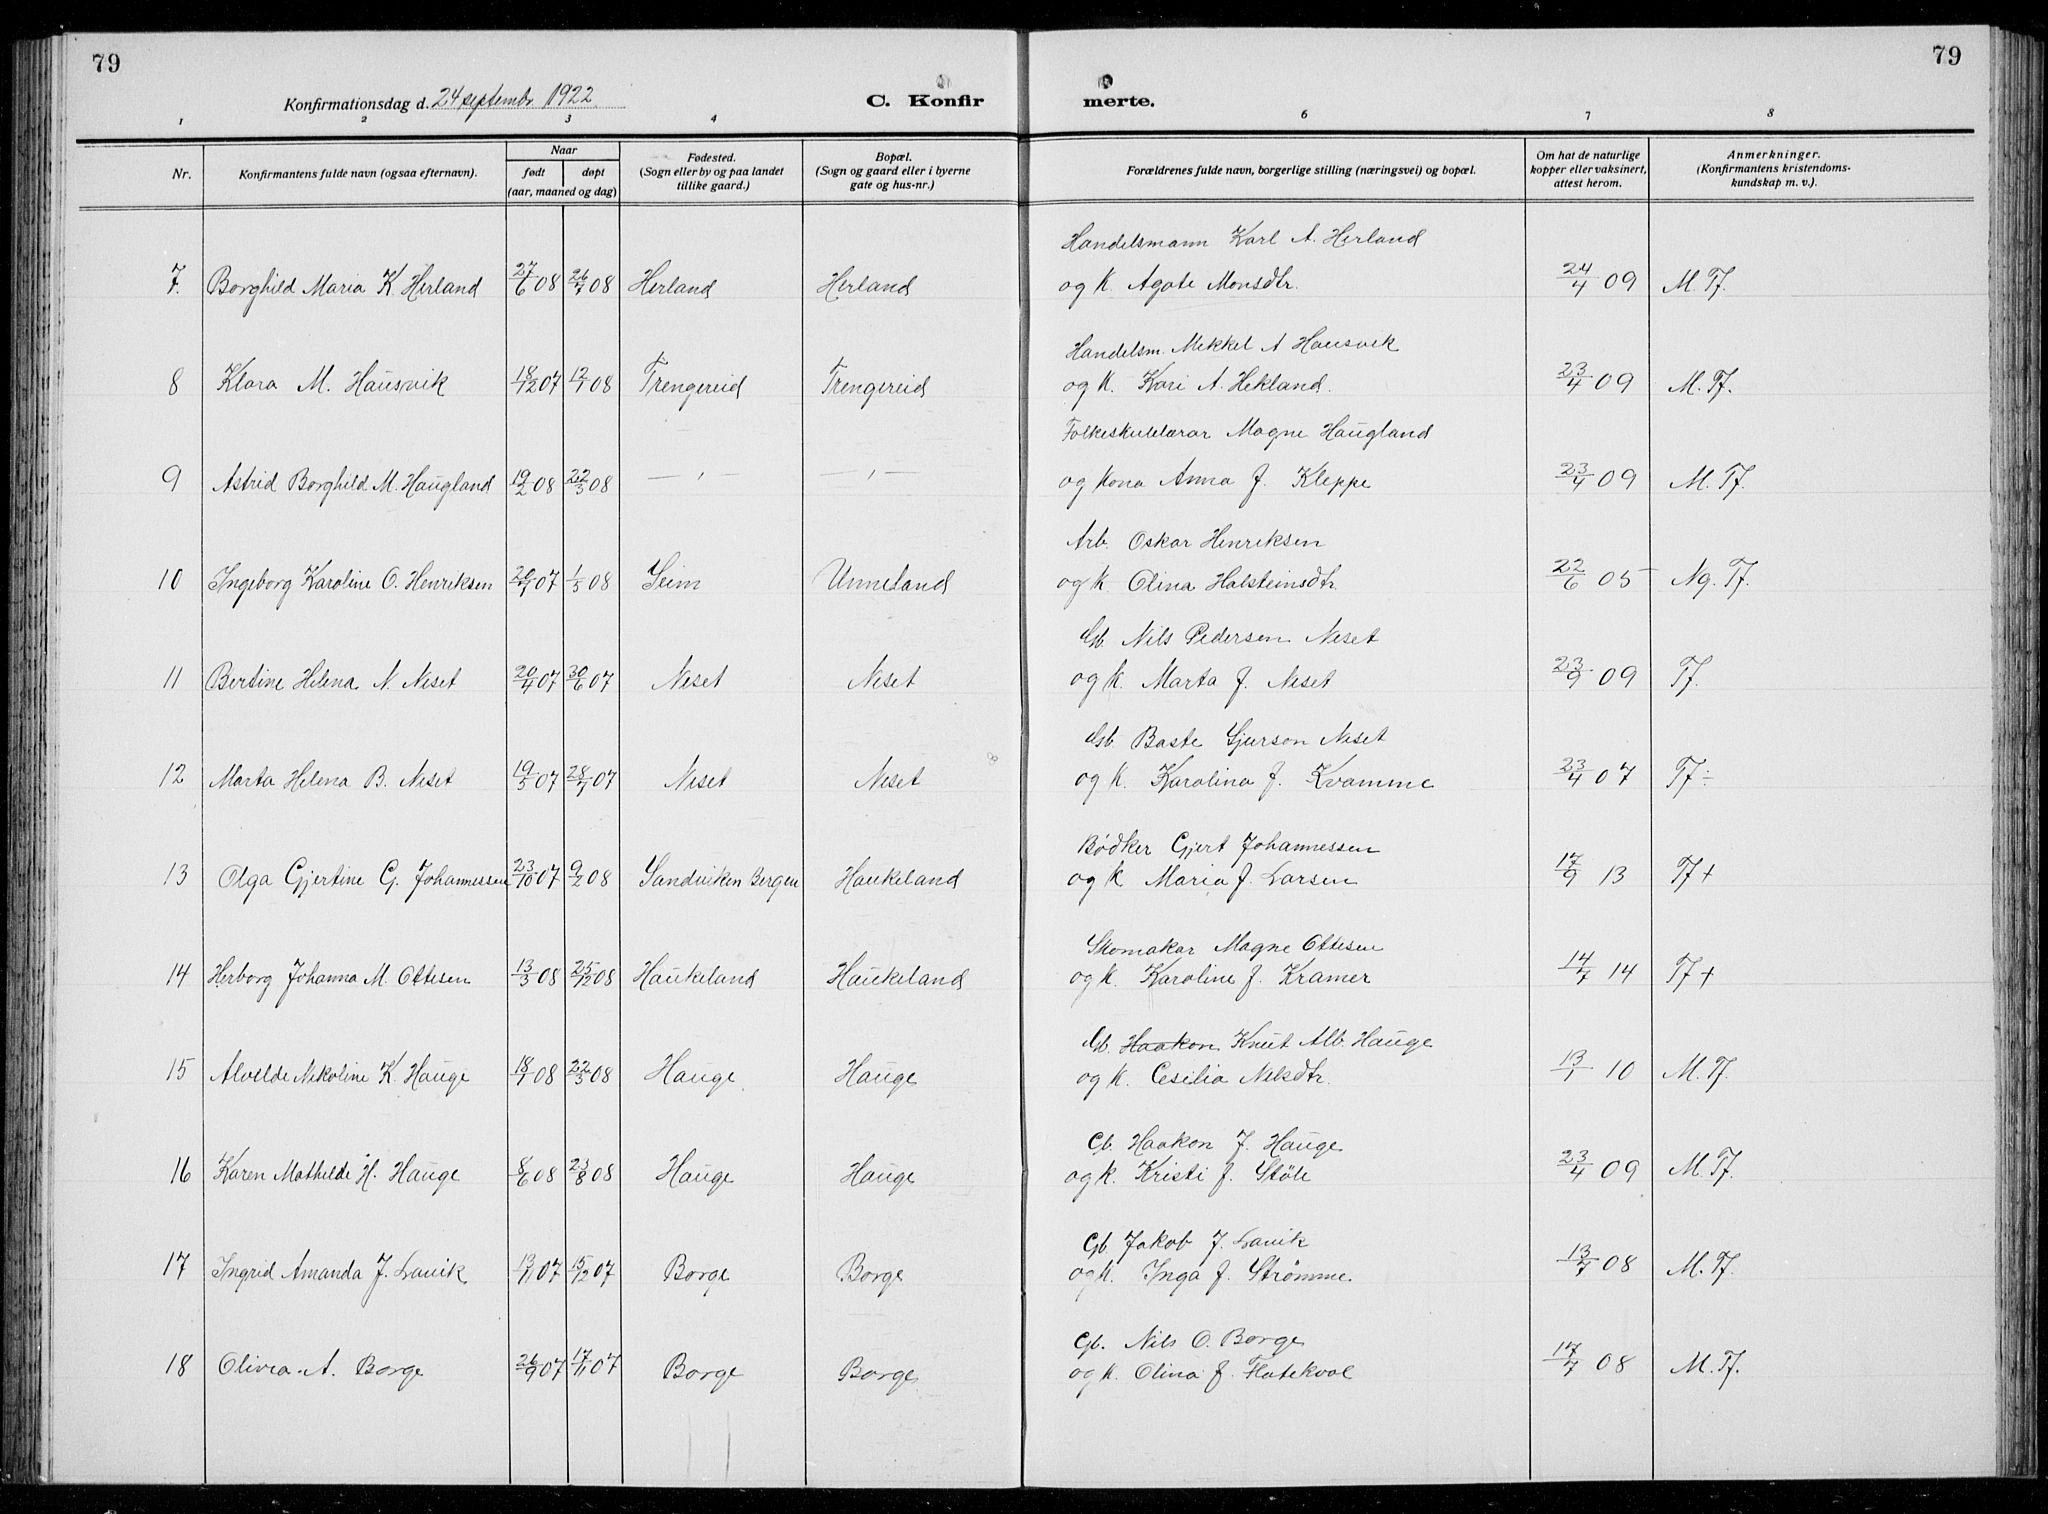 79
79
Konfirmationsdag d. 24 septembr 1922
C. Konfir
merte.
1 2 3 4 6 7 8
Nr.
Konfirmantens fulde navn (ogsaa efternavn).
Naar
født døpt
(aar, maaned og dag)
Fødested.
(Sogn eller by og paa landet
tillike gaard.)
Bopæl.
(Sogn og gaard eller i byerne
gate og hus-nr.)
Forældrenes fulde navn, borgerlige stilling (næringsvei) og bopæl.
Om hat de naturlige
kopper eller vaksinert,
attest herom.
Anmerkninger.
(Konfirmantens kristendoms-
kundskap m. v.).
Handelsmann Karl A. Herland
7. Borghild Maria K. Herland 27/6 08 26/7 08 Herland Herland og k. Agate Monsdtr. 24/4 09 M. Tf.
Handelsm. Mekkel A Hausvik
8 Klara M. Hausvik 18/12 07 12/1 08 Trengereid Trengereid og k. Kari A. Hekland. 23/4 09 M. Tf.
Folkeskulelærar Magne Haugland
9 Astrid Borghild M. Haugland 19/2 08 22/3 08 — " — — " — og kona Anna J. Kleppe 23/4 09 M. Tf.
Arb. Oskar Henriksen
10 Ingeborg Karoline O. Henriksen 07 1/3 08 Seim Unneland og k Olina Halsteinsdtr. 22/6 05 Ng. Tf.
Gb. Nils Pedersen Neset
11 Bertine Helena N. Neset 20/4 07 30/6 07 Neset Neset og k. Marta J. Neset 23/9 09 Tf.
Gb. Baste Gjurson Neset
12 Marta Helena B. Neset 19/5 07 28/7 07 Neset Neset og k. Karolina J. Kvamme 23/4 07 Tf ÷
Bødker Gjert Johannessen
13 Olga Gjertine G. Johannessen 23/10 07 9/2 08 Sandviken Bergen Haukeland og k Maria J. Larsen 17/9 13 Tf +
Skomakar Magne Ottesen
14 Herborg Johanna M. Ottesen 13/3 08 25/12 08 Haukeland Haukeland og k. Karoline J. Kramer 14/7 14 Tf +
Gb. Haakon Knut Alb. Hauge
15 Alvilde Nikoline K. Hauge 18/1 08 22/3 08 Hauge Hauge og k. Cesilia Nilsdtr. 13/1 10 M. Tf.
Gb. Haakon J. Hauge
16 Karen Mathilde H. Hauge 8/6 08 23/8 08 Hauge Hauge og k. Kristi J. Støle 23/4 09 M. Tf.
Gb. Jakob J. Lavik
17 Ingrid Amanda J. Lavik 13/11 07 15/12 07 Borge Borge og k. Inga J. Strømme. 13/7 08 M. Tf.
Gb. Nils O. Borge
18 Olivia A. Borge 26/9 07 17/11 07 Borge Borge og k. Olina J. Flatekval 17/7 08 M. Tf.